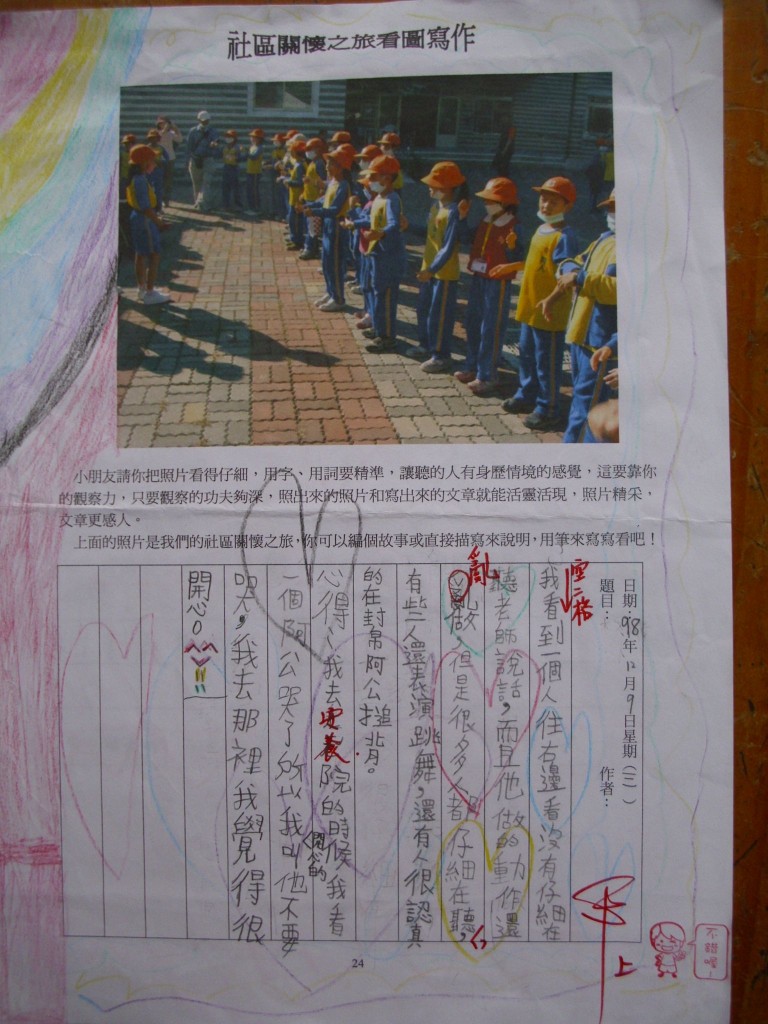 社區關懷之旅看圖寫作
小朋友請你把照片看得仔細，用字、用詞要精準，讓聽的人有身歷情境的感覺，這要靠你
的觀察力，只要觀察的功夫夠深，照出來的照片和寫出來的文章就能活靈活現，照片精采，
文章更感人。
上面的照片是我們的社區關懷之旅，你可以編個故事或直接描寫來說明，用筆來寫寫看吧！
日期：98年12月9日星期（三）
題目：
作者：
空二格
我看到一個人往右邊看沒有仔細在
聽老師說話，而且他做的動作還
亂
亂做，但是很多人都仔細在聽，
有些人還表演跳舞，還有人很認真
的在封帛阿公搥背。
心得：我去安養院的時候我看
一個阿公哭了所以我叫他不要
開心的
哭，我去那裡我覺得很
開心。
上
不錯喔~
24